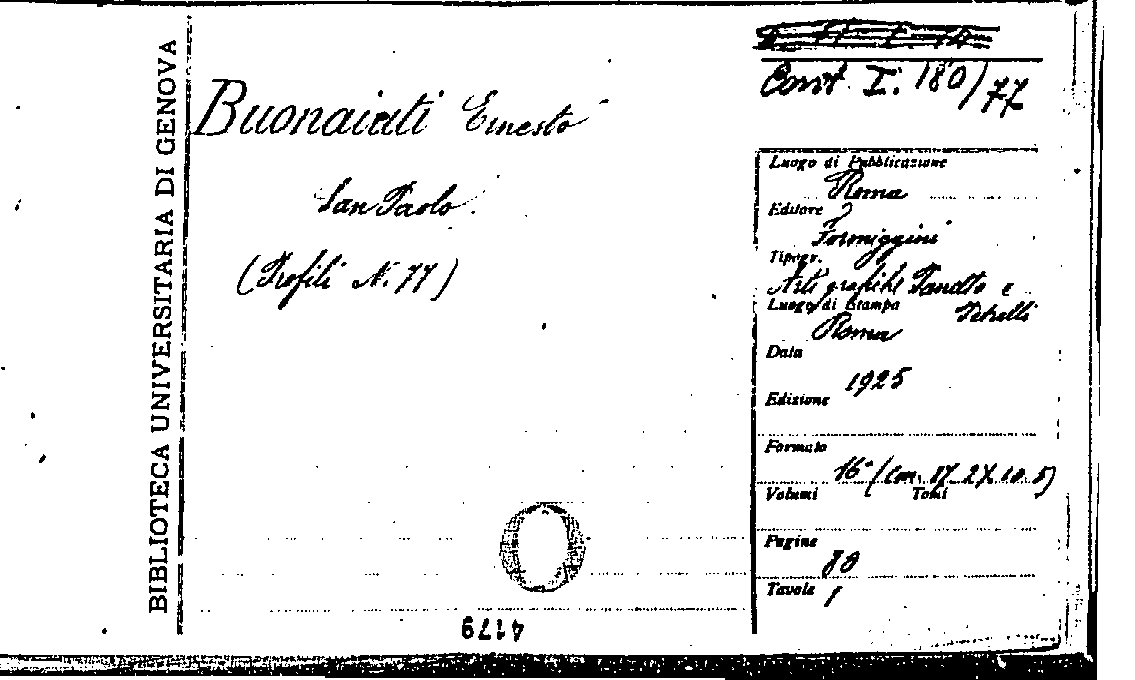 BIBLIOTECA UNIVERSITARIA DI GENOVA
Cont. I. 180/77
Buonaiuti Ernesto
San Paolo.
(Profili N. 77)
Luogo di Pubblicazione
Roma
Editore
Formiggini
Tipogr.
Arti grafiche e
Petrelli
Luogo di Stampa
Roma
Data
1925
Edizione
Formato
16°
Volumi Tomi
Pagine
80
Tavole 1
4179